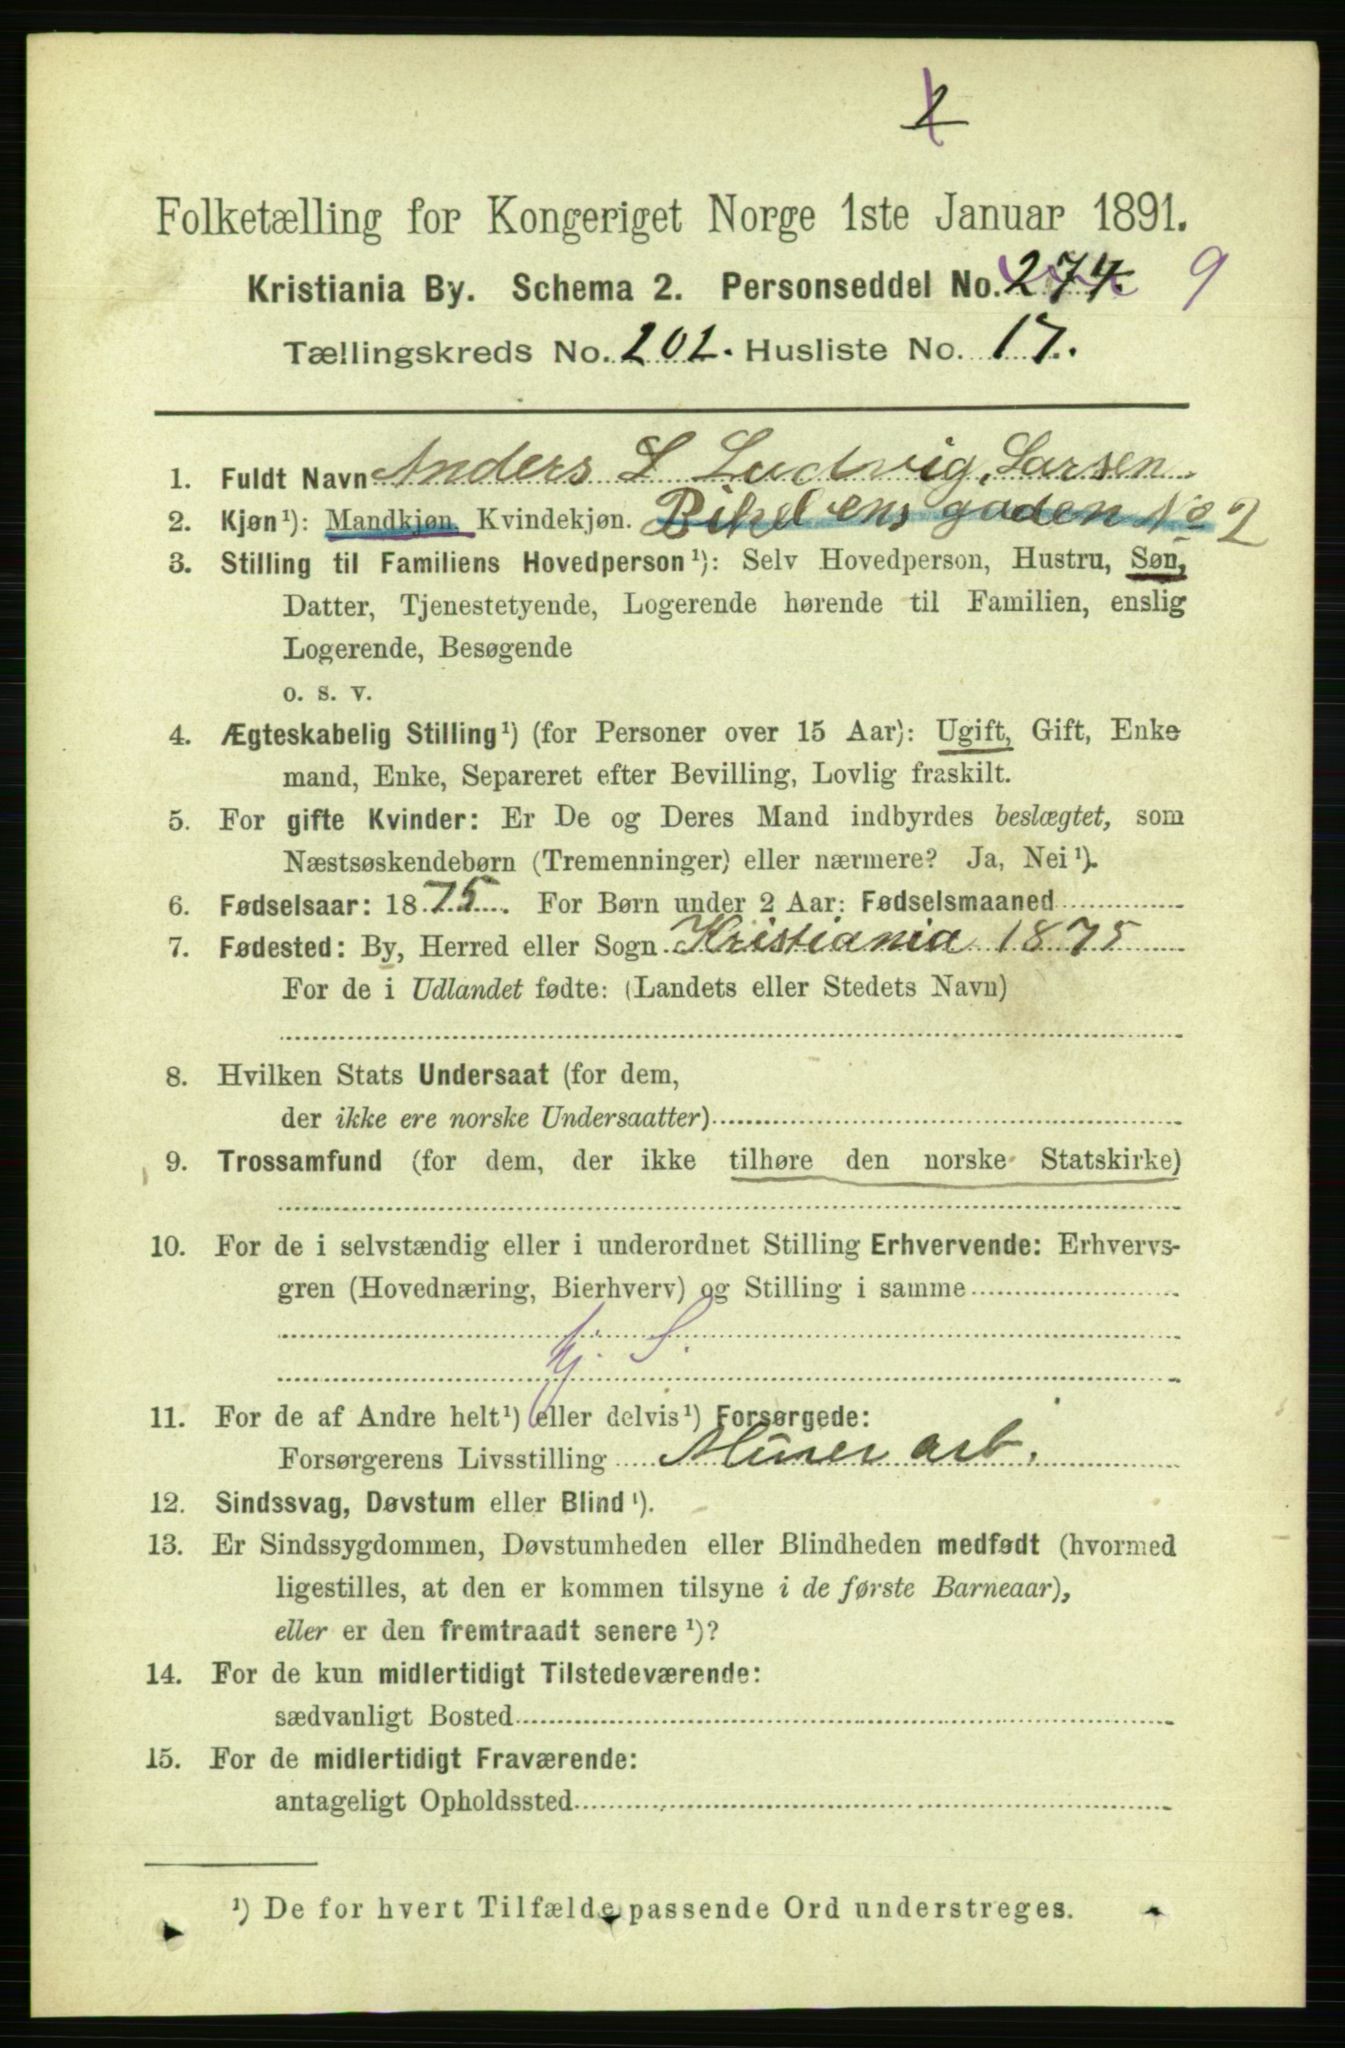 2
Folketælling for Kongeriget Norge 1ste Januar 1891.
Kristiania By. Schema 2. Personseddel No. 274. 9
Tællingskreds No. 202. Husliste No. 17.
1. Fuldt Navn Anders L Ludvig. Larsen
2. Kjøn¹): Mandkjøn, Kvindekjøn. gaden No 2
3. Stilling til Familiens Hovedperson¹): Selv Hovedperson, Hustru, Søn,
Datter, Tjenestetyende, Logerende hørende til Familien, enslig
Logerende, Besøgende
o. s. v.
4. Ægteskabelig Stilling¹) (for Personer over 15 Aar): Ugift, Gift, Enke
mand, Enke, Separeret efter Bevilling, Lovlig fraskilt.
5. For gifte Kvinder: Er De og Deres Mand indbyrdes beslægtet, som
Næstsøskendebørn (Tremenninger) eller nærmere? Ja, Nei¹).
6. Fødselsaar: 1875. For Børn under 2 Aar: Fødselsmaaned
7. Fødested: By, Herred eller Sogn Kristiania 1875
For de i Udlandet fødte: (Landets eller Stedets Navn)
8. Hvilken Stats Undersaat (for dem,
der ikke ere norske Undersaatter)
9. Trossamfund (for dem, der ikke tilhøre den norske Statskirke)
10. For de i selvstændig eller i underordnet Stilling Erhvervende: Erhvervs-
gren (Hovednæring, Bierhverv) og Stilling i samme
S.
11. For de af Andre helt¹) eller delvis¹) Forsørgede:
Forsørgerens Livsstilling Murer arb.
12. Sindssvag, Døvstum eller Blind¹).
13. Er Sindssygdommen, Døvstumheden eller Blindheden medfødt (hvormed
ligestilles, at den er kommen tilsyne i de første Barneaar),
eller er den fremtraadt senere¹)?
14. For de kun midlertidigt Tilstedeværende:
sædvanligt Bosted
15. For de midlertidigt Fraværende:
antageligt Opholdssted
¹) De for hvert Tilfælde passende Ord understreges.